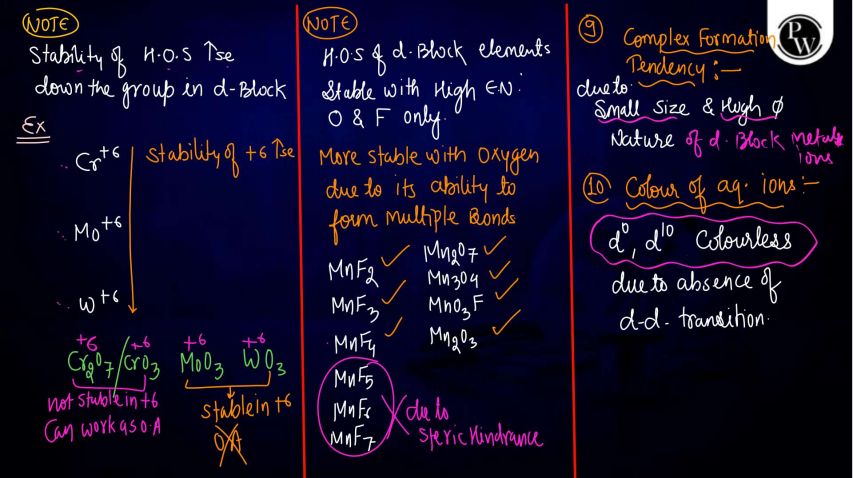 NOTE
Stability of H.O.S ↑se
down the group in d-Block
Ex
Cr+6
Stability of +6 ↑se
Mo+6
W+6
+6 +6 +6 +6
Cr2O7/CrO3 MoO3 WO3
not stable in +6
Can work as O.A
stable in +6
OA
NOTE
H.O.S of d-Block elements
Stable with High E.N:
O & F only.
More stable with Oxygen
due to its ability to
form Multiple Bonds
MnF2 ✓ Mn2O7 ✓
MnF3 ✓ Mn3O4 ✓
MnF4 ✓ MnO3F ✓
Mn2O3 ✓
MnF5
MnF6
MnF7
due to
Steric Hindrance
9 Complex Formation
Tendency:-
due to
Small Size & High ϕ
Nature of d-Block metals
ions
10 Colour of aq. ions:-
d0, d10 Colourless
due to absence of
d-d-transition.
PW